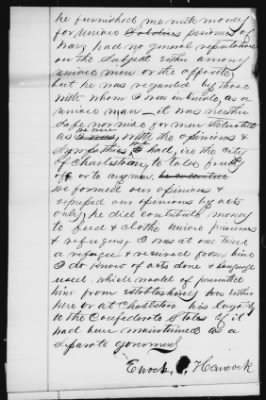 he furnished me with money
for Union Soldiers prisoners of
War, had no general reputation
on the Subject either among
union men or the opposite,
but he was regarded by those
with whom I was in , as a
union man, it was neither
safe nor wise, for men situated
as we were, with the opinions &
Sympathies we had, in the City
of Charleston, to talk freely
of or to any man,
we formed our opinions &
our opinions by acts
only, he did contribute money
to feed & clothe union prisoners
& refugees, I was at one time
a refugee & received from him
I do Know of acts done & language
used which would of prevented
him from establishing ever either
here or at Charleston his loyalty
to the Confederate States if it
had been maintained as a
separate government
Enock Hancock